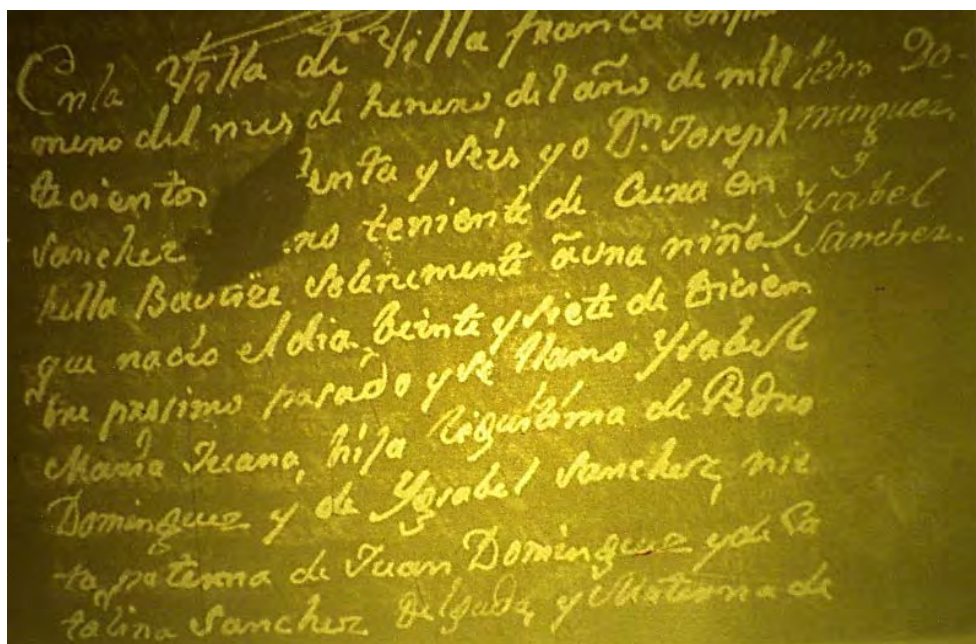 En la Villa de Villa franca en pri
mero del mes de henero del año de mil
tecientos enta y seis yo Dn. Joseph
Sanchez no teniente de Cura en
hella Bautize solenemente â una niña
que nacio el dia beinte y siete de Diciem
bre procsimo pasado y se llamo Ysabel
Maria Juana, hija ligitima de Pedro
Dominguez y de Ysabel Sanchez, nie
ta paterna de Juan Dominguez y de Ca
talina Sanchez Delgada, y Materna de
Pedro Do-
minguez,
y
Ysabel
Sanchez.